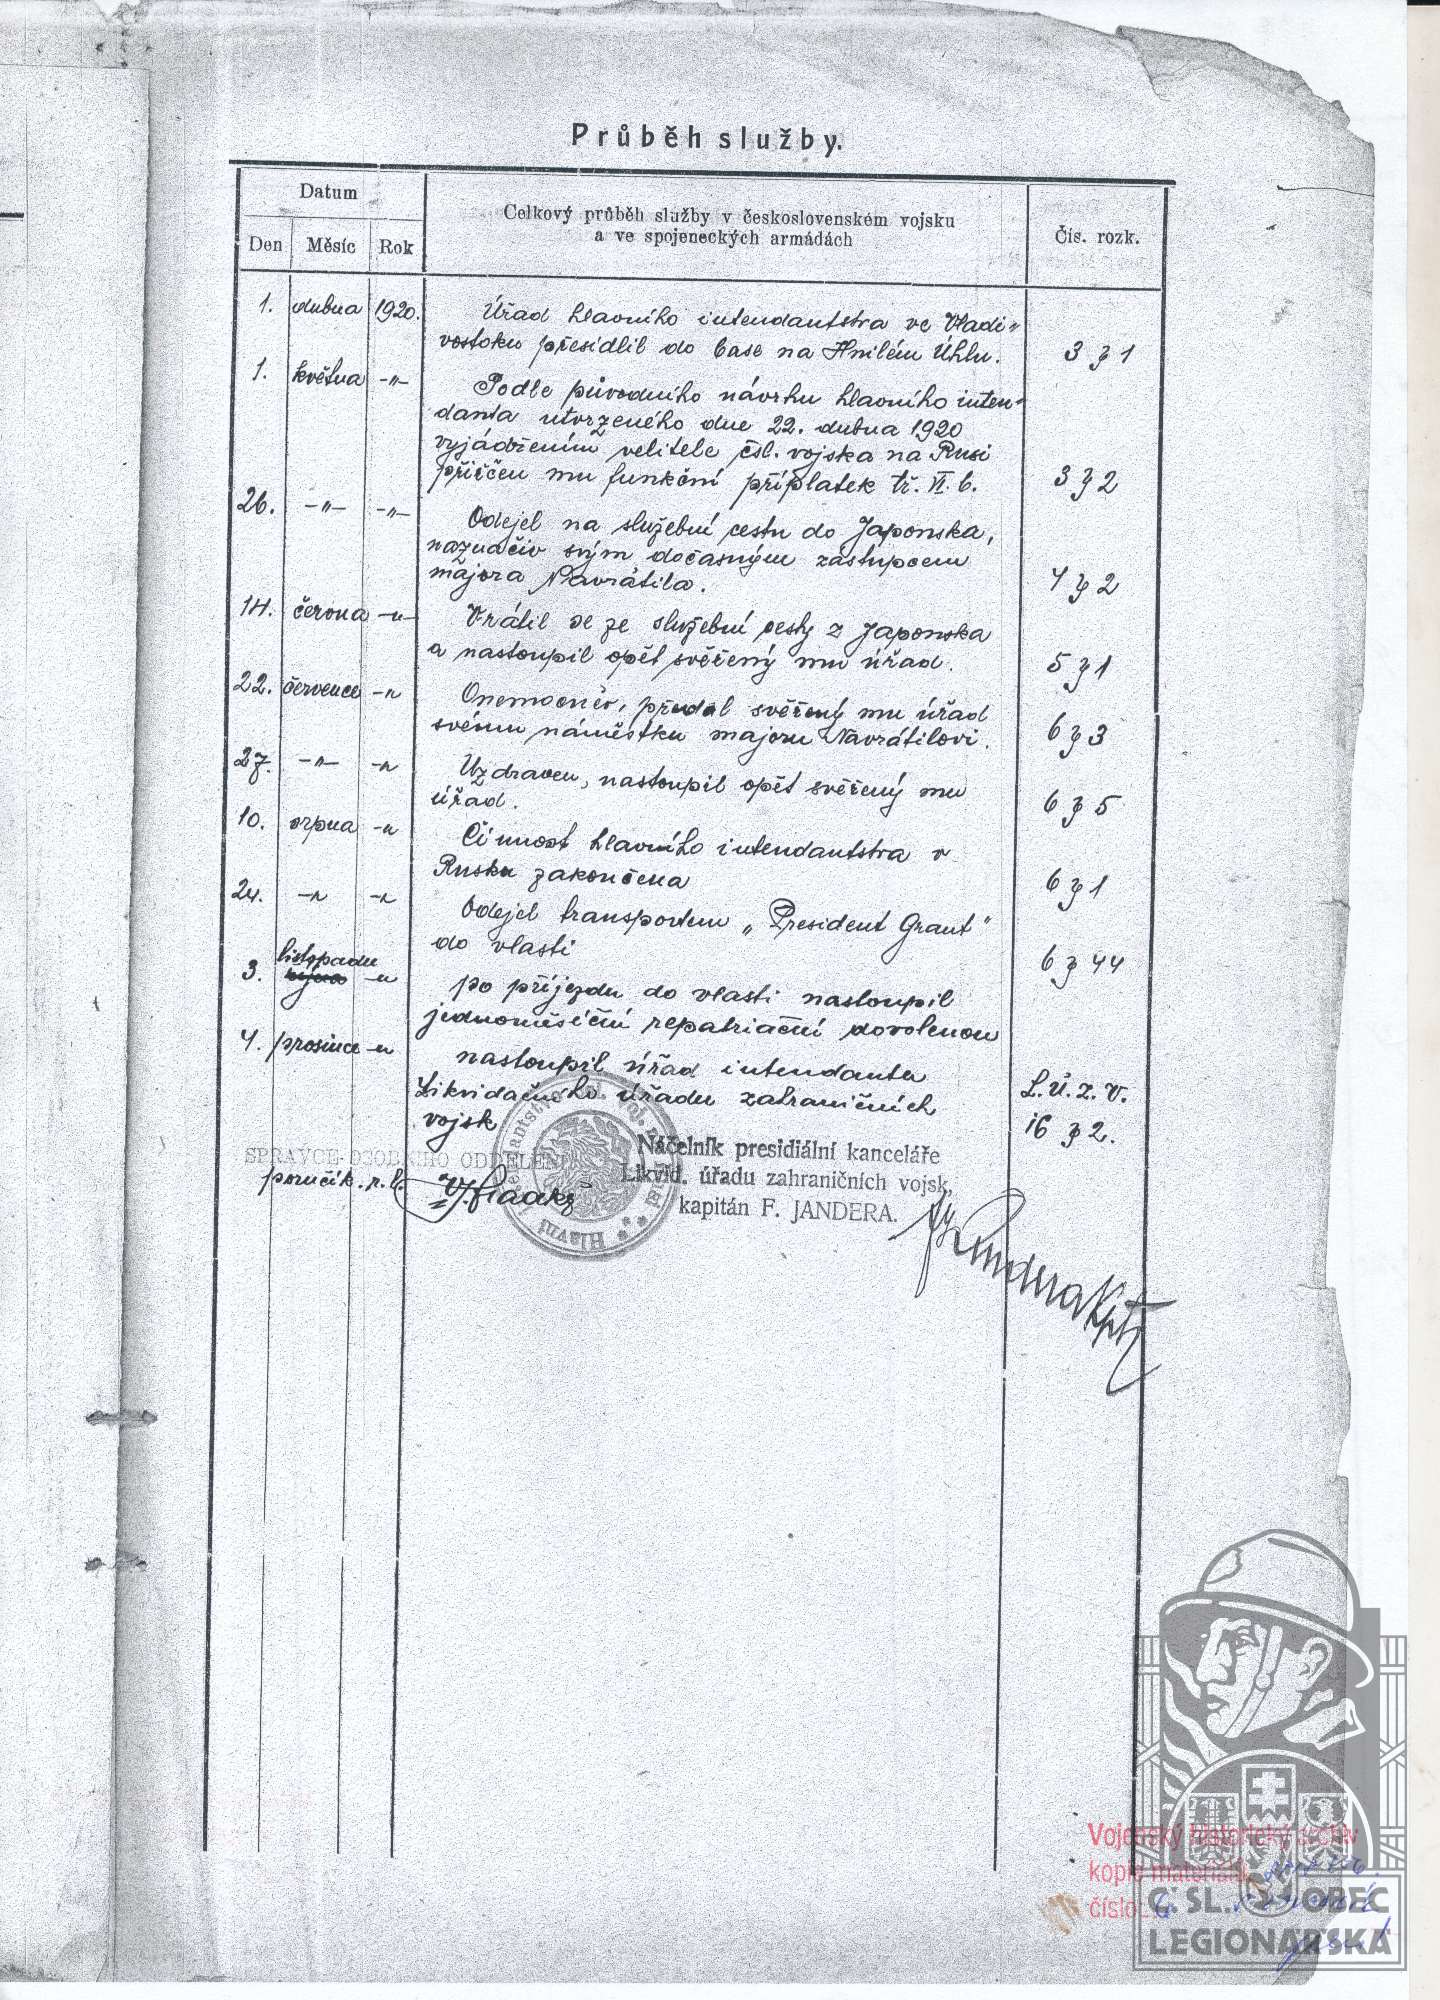 Průběh služby.
Datum
Celkový průběh služby v československém vojsku
a ve spojeneckých armádách
Čís. rozk.
Den Měsíc Rok
1. dubna 1920. Úřad hlavního intendantstva ve Vladi-
vostoku přesídlil do base na Hnilém Úhlu. 3 § 1
1. května -"- Podle původního návrhu hlavního inten-
danta utvrzeného dne 22. dubna 1920
vyjádřením velitele čsl. vojska na Rusi
přiřčen mu funkční příplatek tř. VI. b. 3 § 2
26. -"- -"- Odejel na služební cestu do Japonska,
naznačiv svým dočasným zástupcem
majora Navrátila. 4 § 2
14. června -"- Vrátil se ze služební cesty z Japonska
a nastoupil opět svěřený mu úřad. 5 § 1
22. července -"- Onemocněv, předal svěřený mu úřad
svému náměstku majoru Navrátilovi. 6 § 3
27. -"- -"- Uzdraven, nastoupil opět svěřený mu
úřad. 6 § 5
10. srpna -"- Činnost hlavního intendantstva v
Rusku zakončena 6 § 1
24. -"- -"- Odejel transportem „President Grant"
do vlasti 6 § 44
listopadu
3. října -"- po příjezdu do vlasti nastoupil
jednoměsíční repatriační dovolenou
4. prosince -"- nastoupil úřad intendanta
Likvidačního úřadu zahraničních L. Ú. z. V.
vojsk 16 § 2.
SPRÁVCE OSOBNÍHO ODDĚLENÍ
poručík r. l.
Náčelník presidiální kanceláře
Likvid. úřadu zahraničních vojsk,
kapitán F. JANDERA.
Hlavní
Jandera Kpt
Vojenský historický archiv
kopie materiálu
číslo:
ČSL. OBEC
LEGIONÁŘSKÁ